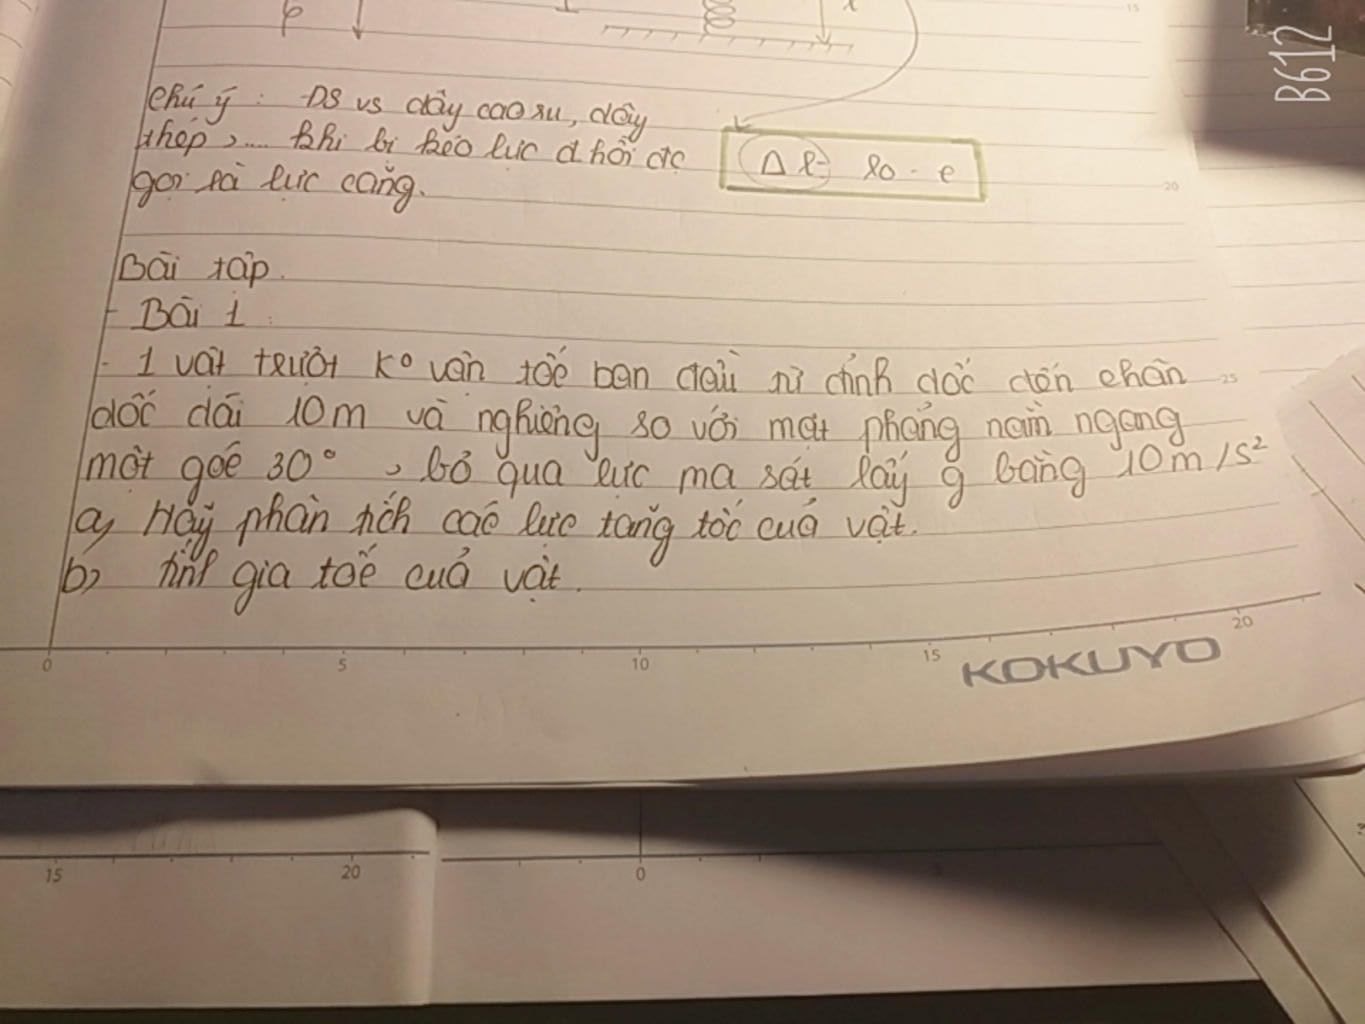 P
λ
15
B612
Chú ý : Đs vs dây cao su, dây
thép,.... khi bị kéo lực đ hồi đc
gọi là lực căng.
Δl = lo - l
20
Bài tập.
- Bài 1.
- 1 vật trượt ko vận tốc ban đầu từ đỉnh dốc đến chân
25
dốc dài 10m và nghiêng so với mặt phẳng nằm ngang
một góc 30°, bỏ qua lực ma sát lấy g bằng 10m/s²
a, Hãy phân tích các lực tăng tốc cuả vật.
b, tính gia tốc cuả vật.
0 5 10 15 20
KOKUYO
15 20 0